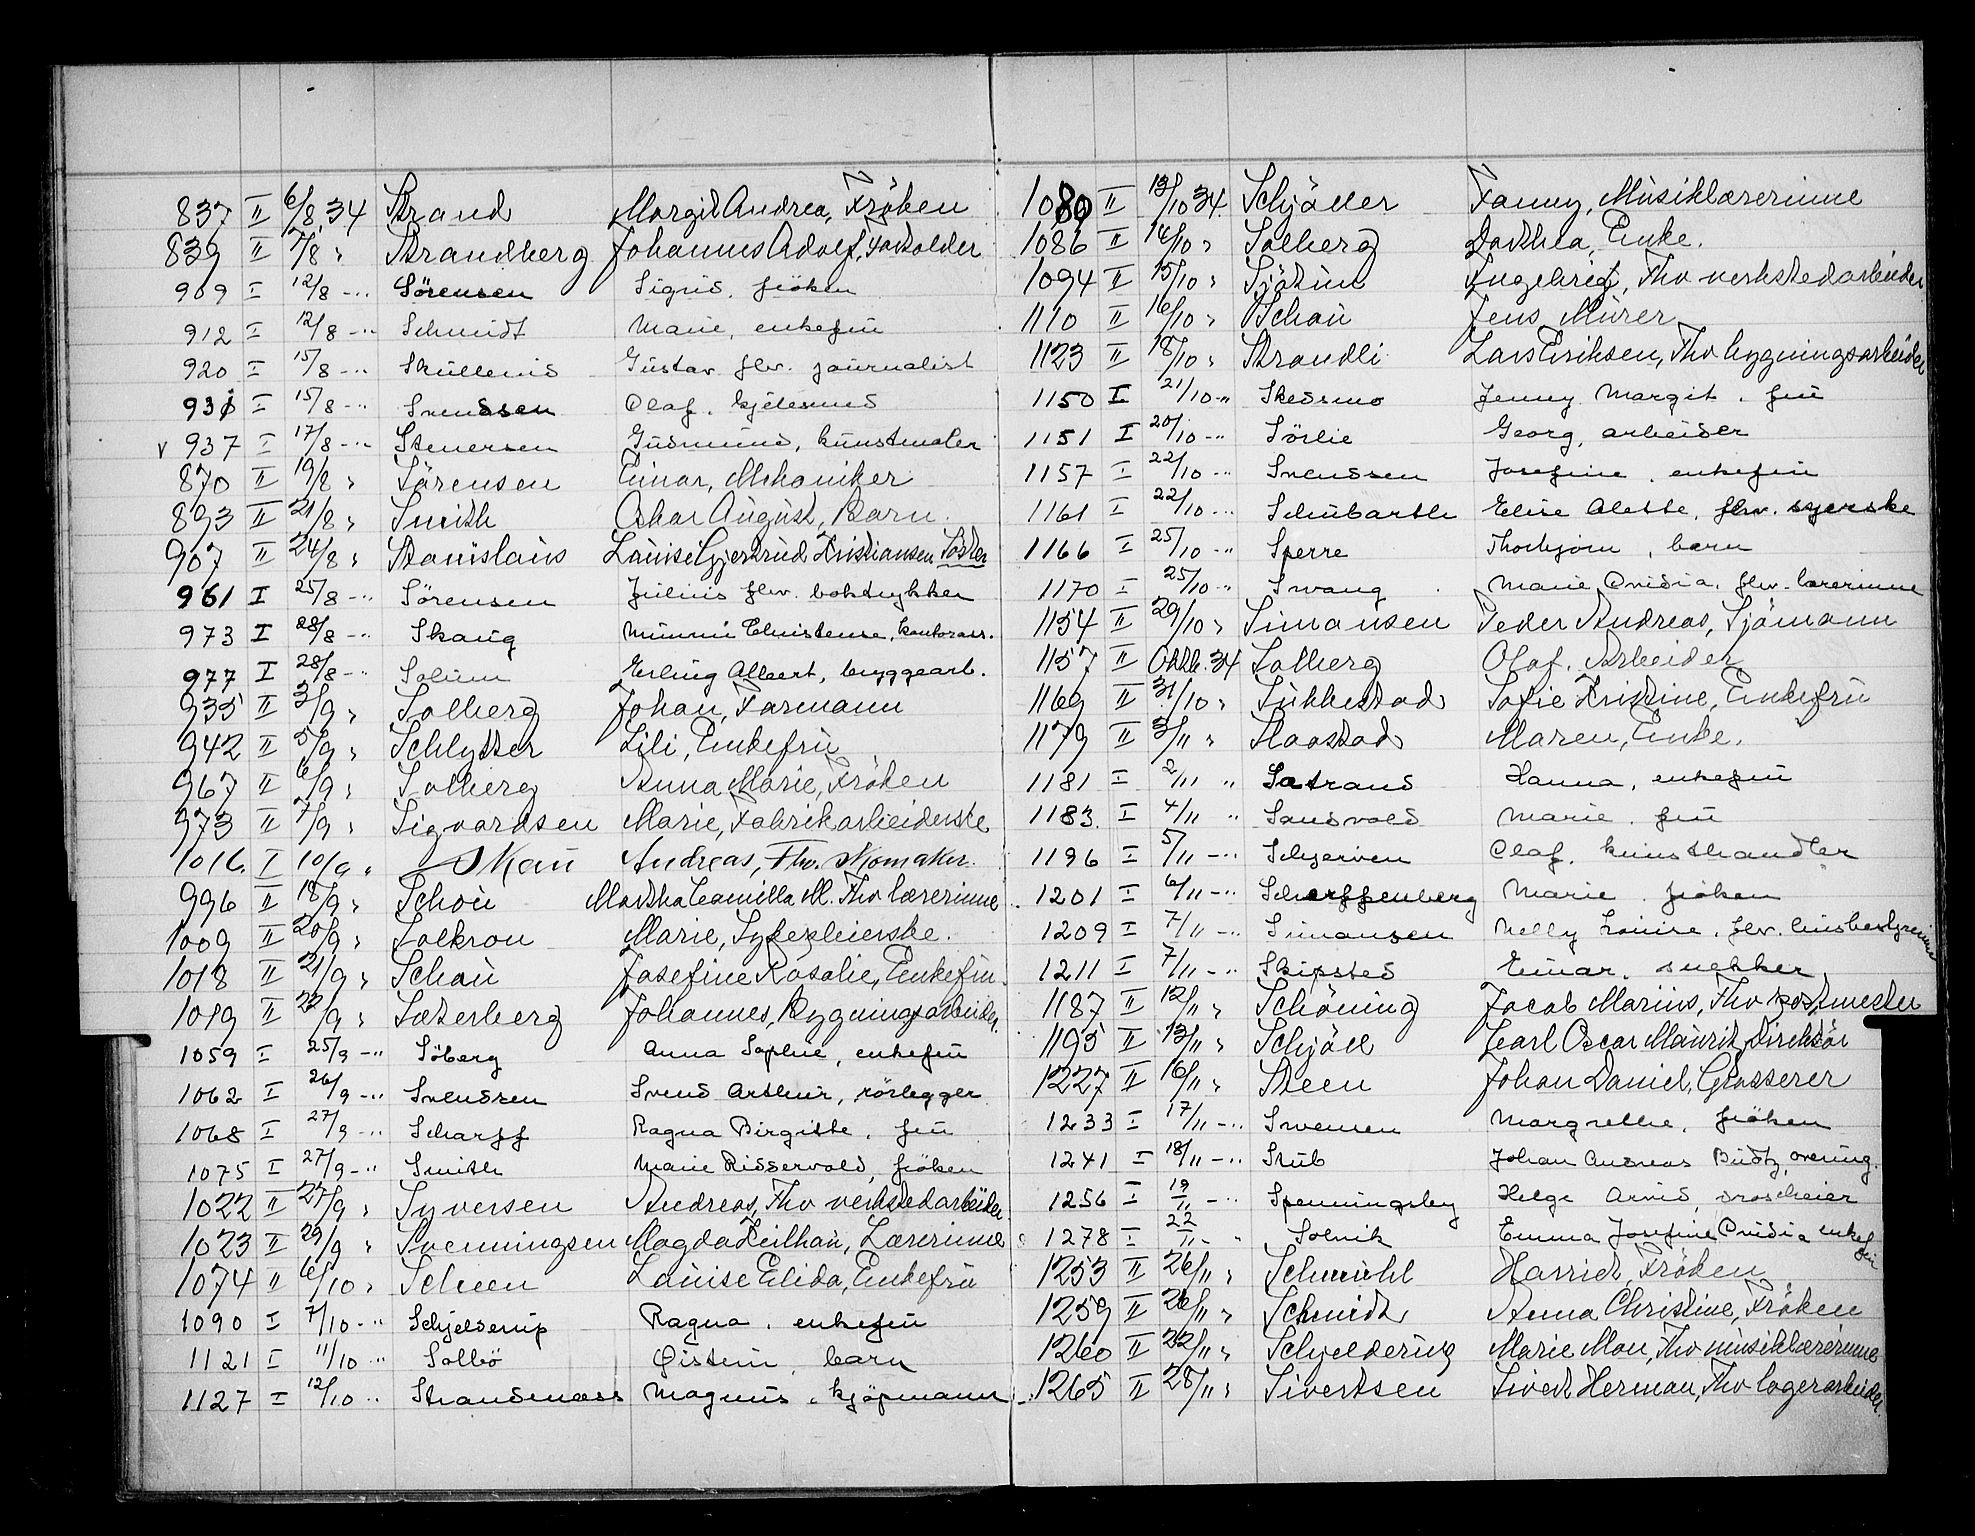 837 II 6/8 34 Strand Margit Andrea, Frøken
839 II 7/8 " Strandberg Johannes Adolf, Forvalder
909 I 12/8 -"- Sörensen Sigrid, fröken
912 I 12/8 -"- Schmidt Marie, enkefru
920 I 15/8 -"- Skullerud Gustav flw. journalist
930 I 15/8 -"- Svendsen Olaf, kjelesmed
v 937 I 17/8 -"- Stenersen Gudmund, kunstmaler
870 II 19/8 " Sörensen Einar, Mekaniker
893 II 21/8 " Smith Oskar August, Barn
907 II 24/8 " Stanislaus Lauise Gjertrud Kristiansen Söster
961 I 25/8 -"- Sörensen Julius flw. boktrykker
973 I 28/8 -"- Skaug Mimmi Christense, kontorass.
977 I 28/8 -"- Solum Erling Albert, byggearb.
935 II 3/9 " Solberg Johan, Formann
942 II 5/9 " Schlytter Lili, Enkefru
967 II 6/9 " Solberg Anna Marie, Fröken
973 II 7/9 " Sigvardsen Marie, Fabrikarbeiderske
1016. I 10/9 " Skau Andreas, Fhv. skomaker.
996 II 18/9 " Schou Martha Camilla M. Fhv lærerinne
1009 II 20/9 " Solkron Marie, Sykepleierske.
1018 II 21/9 " Schau Josefine Rosalie, Enkefru
1019 II 22/9 " Sæterberg Johannes, Bygningsarbeider.
1059 I 25/9 -"- Söberg Anna Sophie, enkefru
1062 I 26/9 -"- Svendsen Svend Arthur, rörlegger
1068 I 27/9 -"- Scharff Ragna Birgitte, fru
1075 I 27/9 -"- Smith Marie Ridservold, fröken
1022 II 27/9 " Syversen Andreas, Fhv verkstedarbeider
1023 II 29/9 " Svenningsen Magda Keilhau, Lærerinne
1074 II 6/10 " Scheen Lauise Elida, Enkefru
1090 I 7/10 -"- Schjelderup Ragna, enkefru
1121 I 11/10 -"- Solbö Øistein, barn
1127 I 12/10 -"- Strandenæss Magnus, kjöpmann
1080 II 13/10 34. Schjöller Fanny, Musiklærerinne
1086 II 14/10 " Solberg Dorthea, Enke.
1094 II 15/10 " Sjötun Ingebrigt, Fhv verkstedarbeider
1110 II 16/10 " Schau Jens Murer
1123 II 18/10 " Strandli Lars Eriksen, Fhv bygningsarbeider
1150 I 21/10 -"- Skedsmo Jenny Margit, fru
1151 I 20/10 -"- Sörlie Georg, arbeider
1157 I 22/10 -"- Svendsen Josefine, enkefru
1161 I 22/10 -"- Schubarth Elise Alette, flw. syerske
1166 I 25/10 -"- Sperre Thorbjörn, barn
1170 I 25/10 -"- Svang Marie Ovidia, flw. lærerinne
1154 II 29/10 " Simonsen Peder Andreas, Sjömann
1157 II Oktb. 34 Solberg Olaf, Arbeider
1169 II 31/10 " Sukkestad Sofie Kristine, Enkefru
1179 II 3/11 " Slaastad Maren, Enke.
1181 I 2/11 " Satrand Hanna, enkefru
1183. I 4/11 " Sandvold Marie, fru
1196 I 5/11 -"- Schjerven Olaf, kunsthandler
1201 I 6/11 -"- Scharffenberg Marie, fröken
1209 I 7/11 -"- Simonsen Nelly Louise, flw. husbestyrerinne
1211 I 7/11 -"- Skipsted Einar, snekker
1187 II 12/11 " Schöning Jacob Marius, Fhv postmester
1195 II 13/11 " Schjöll Carl Oscar Mauritz, Direktör
1227 II 16/11 " Steen Johan Daniel, Grosserer
1233 I 17/11 -"- Svensen Margrethe, fröken
1241 I 18/11 -"- Stub Johan Andreas Budtz, overing.
1256 I 19/11 -"- Spenningsby Helge Arvid, droscheier
1278 I 22/11 -"- Solvik Emma Josefine Ovidia enkefru
1253 II 26/11 " Schmuhl Harriet, Fröken
1259 II 26/11 " Schmidt Anna Christine, Fröken
1260 II 22/11 " Schjeldering Marie Mon, Fhv musiklærerinne
1265 II 28/11 " Sivertsen Sivert Herman, Fhv lagerarbeider.